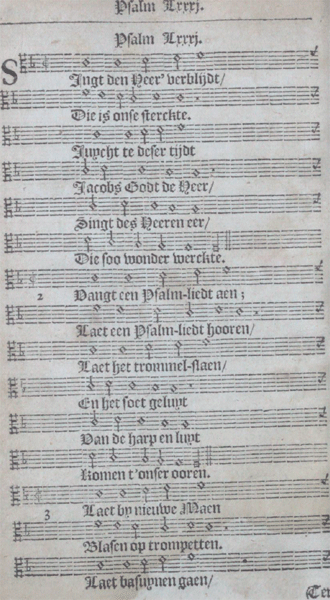 Psalm Lxxxj.
Psalm Lxxxj.
SIngt den Heer' verblijdt/
Die is onse sterckte.
Juycht te deser tijdt
Jacobs Godt de Heer/
Singt des Heeren eer/
Die soo wonder werckte.
2 Vangt een Psalm-liedt aen;
Laet een Psalm-liedt hooren/
Laet het trommel-slaen/
En het soet geluyt
Van de harp en luyt
Komen t'onser ooren.
3 Laet by nieuwe Maen
Blasen op trompetten.
Laet basuynen gaen/